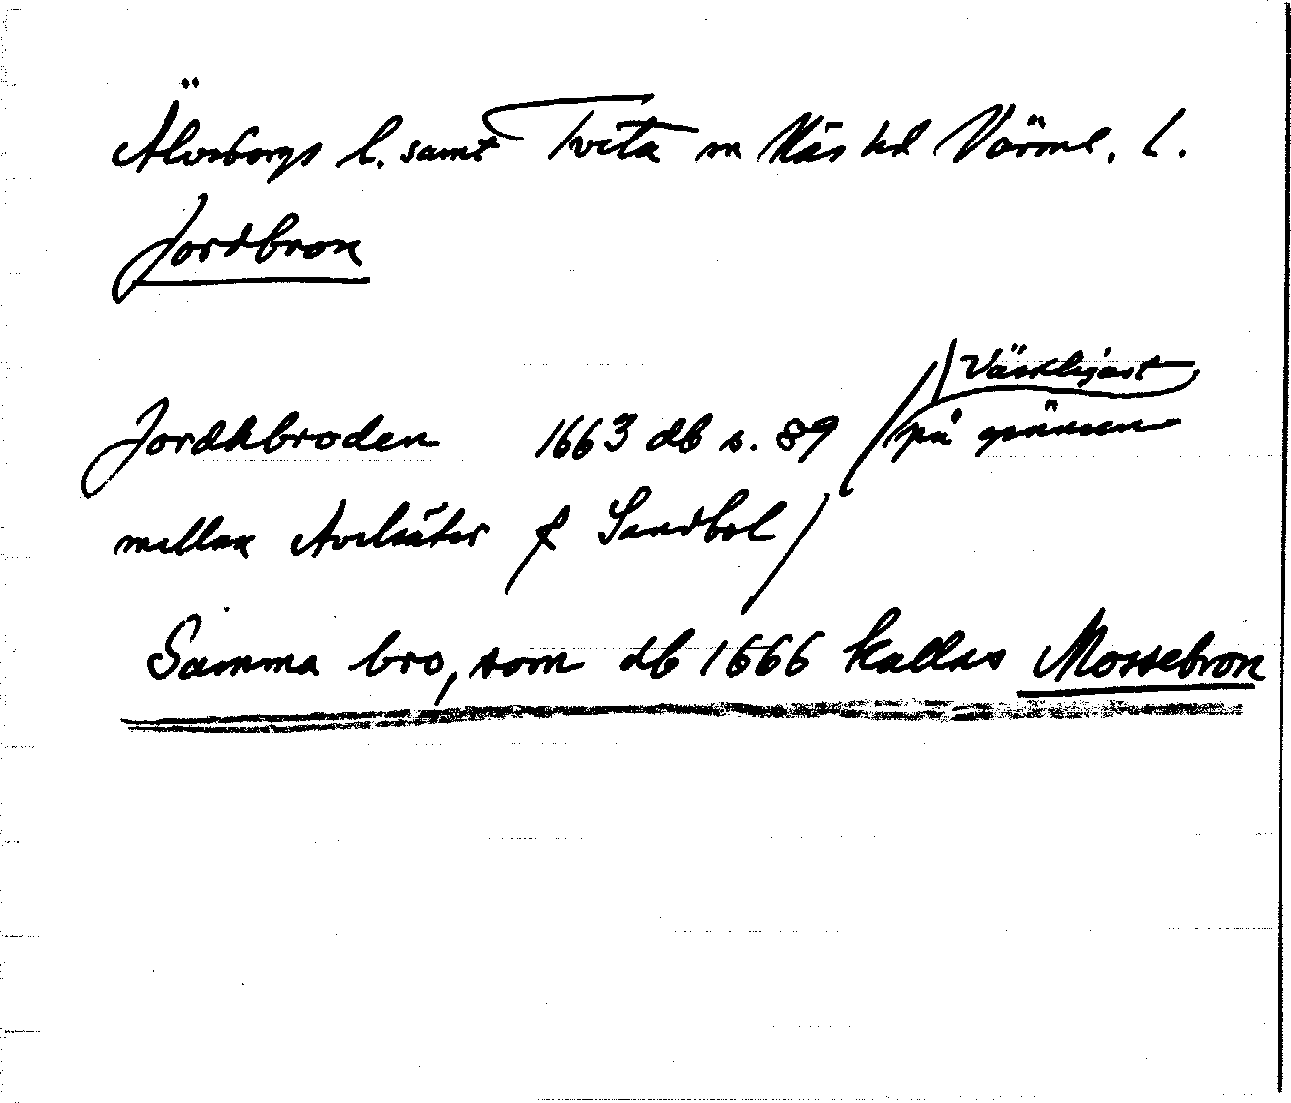 Älvsborgs l. samt Tveta sn Näs hd Värml. l.
Jordbron
Jordhbroden 1663 db s. 89 / på gränsen
mellan Avelsäter & Sandbol /
Samma bro, som db 1666 kallas Mossebron